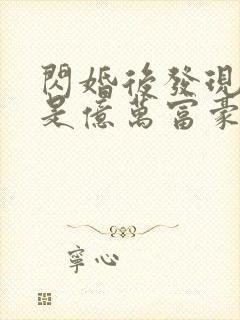 閃婚後發現
是億萬富豪
寧心